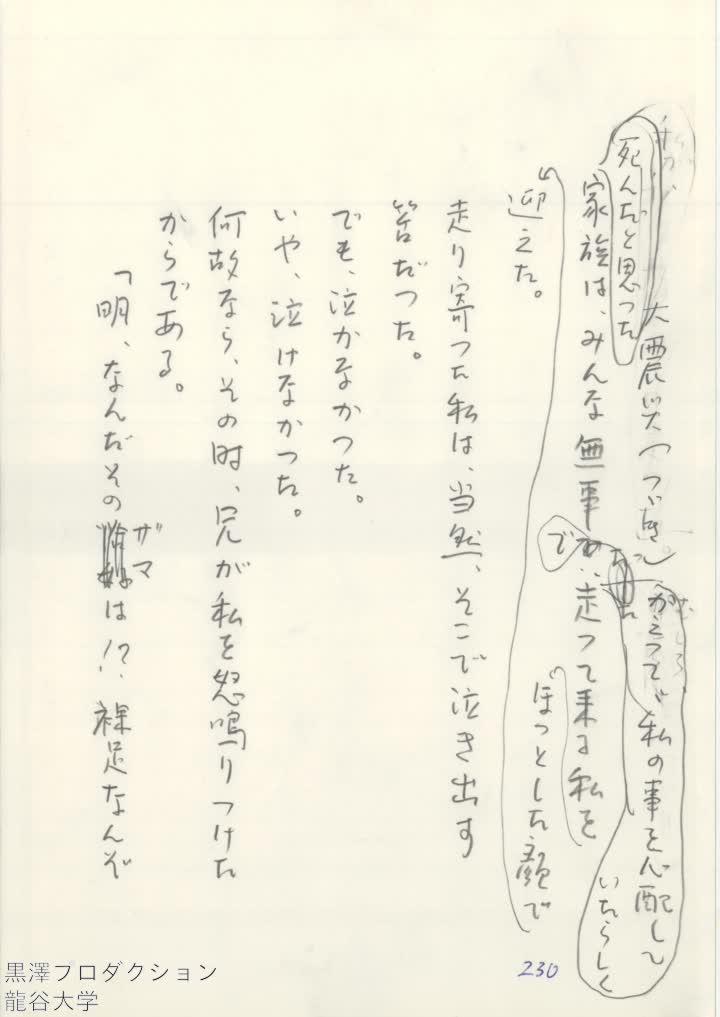 死んだと思った
大震災(つづき)
むしろ
かえって、私の事を心配して
いたらしく
家族は、みんな無事
だった
で
走って来る私を
ほっとした顔で
迎えた。
走り寄った私は、当然、そこで泣き出す
筈だった。
でも、泣かなかった。
いや、泣けなかった。
何故なら、その時、兄が私を怒鳴りつけた
からである。
「明、なんだその
ザマ
は!? 裸足なんぞ
230
黒澤プロダクション
龍谷大学